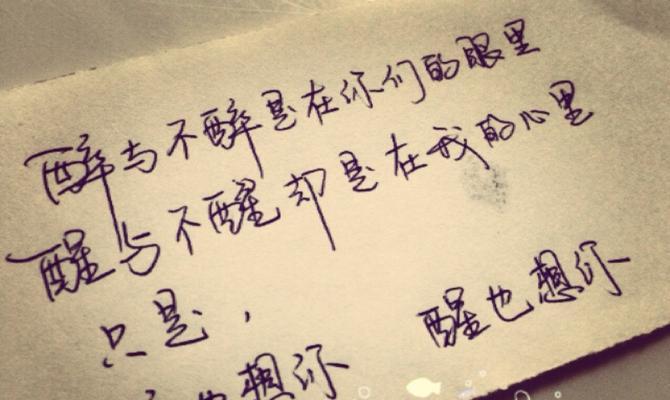 醉与不醉是在你们的眼里
醒与不醒却是在我的心里
只是，
也想你 醒也想你